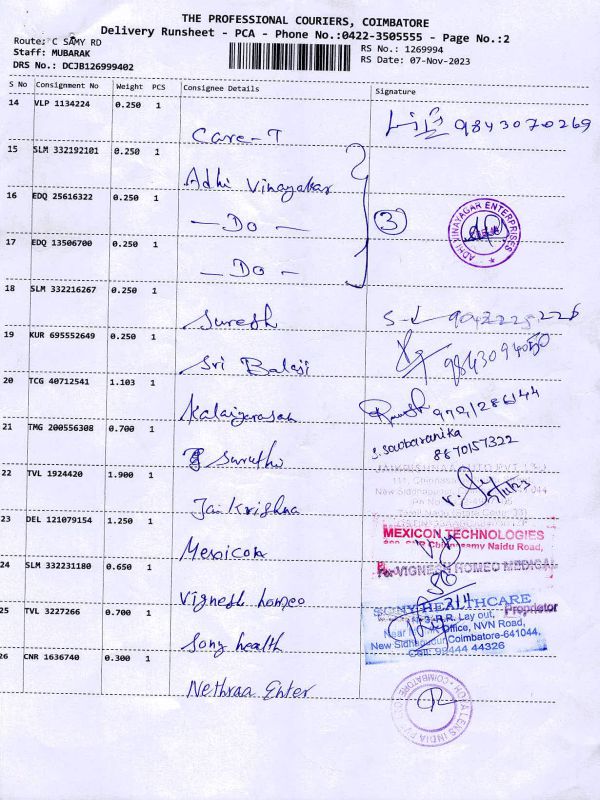 THE PROFESSIONAL COURIERS, COIMBATORE
Delivery Runsheet - PCA - Phone No.:0422-3505555 - Page No.:2
Route: C SAMY RD
Staff: MUBARAK
DRS No.: DCJB126999402
RS No.: 1269994
RS Date: 07-Nov-2023
S No Consignment No Weight PCS Consignee Details Signature
14 VLP 1134224 0.250 1
Care-T 9843070269
15 SLM 332192101 0.250 1
Adhi Vinayakar
16 EDQ 25616322 0.250 1
— Do — 3 ADHI VINAYAGAR ENTERPRISES
17 EDQ 13506700 0.250 1
— Do —
18 SLM 332216267 0.250 1
Suresh
19 KUR 695552649 0.250 1
Sri Balaji
20 TCG 40712541 1.103 1
Kalaiyarasan
21 TMG 200556308 0.700 1
S. Sowbaranika
8870157322
22 TVL 1924420 1.900 1
Jai Krishna
23 DEL 121079154 1.250 1
MEXICON TECHNOLOGIES
Naidu Road,
Mexicon
24 SLM 332231180 0.650 1
For VIGNESH HOMEO MEDICAL
Vignesh homeo
25 TVL 3227266 0.700 1
SONY HEALTHCARE
Proprietor
R.R. Lay out,
Office, NVN Road,
New Sidhapudur, Coimbatore-641044.
Cell: 99444 44326
Sony health
26 CNR 1636740 0.300 1
Nethraa Enter
HOYA LENS INDIA COIMBATORE